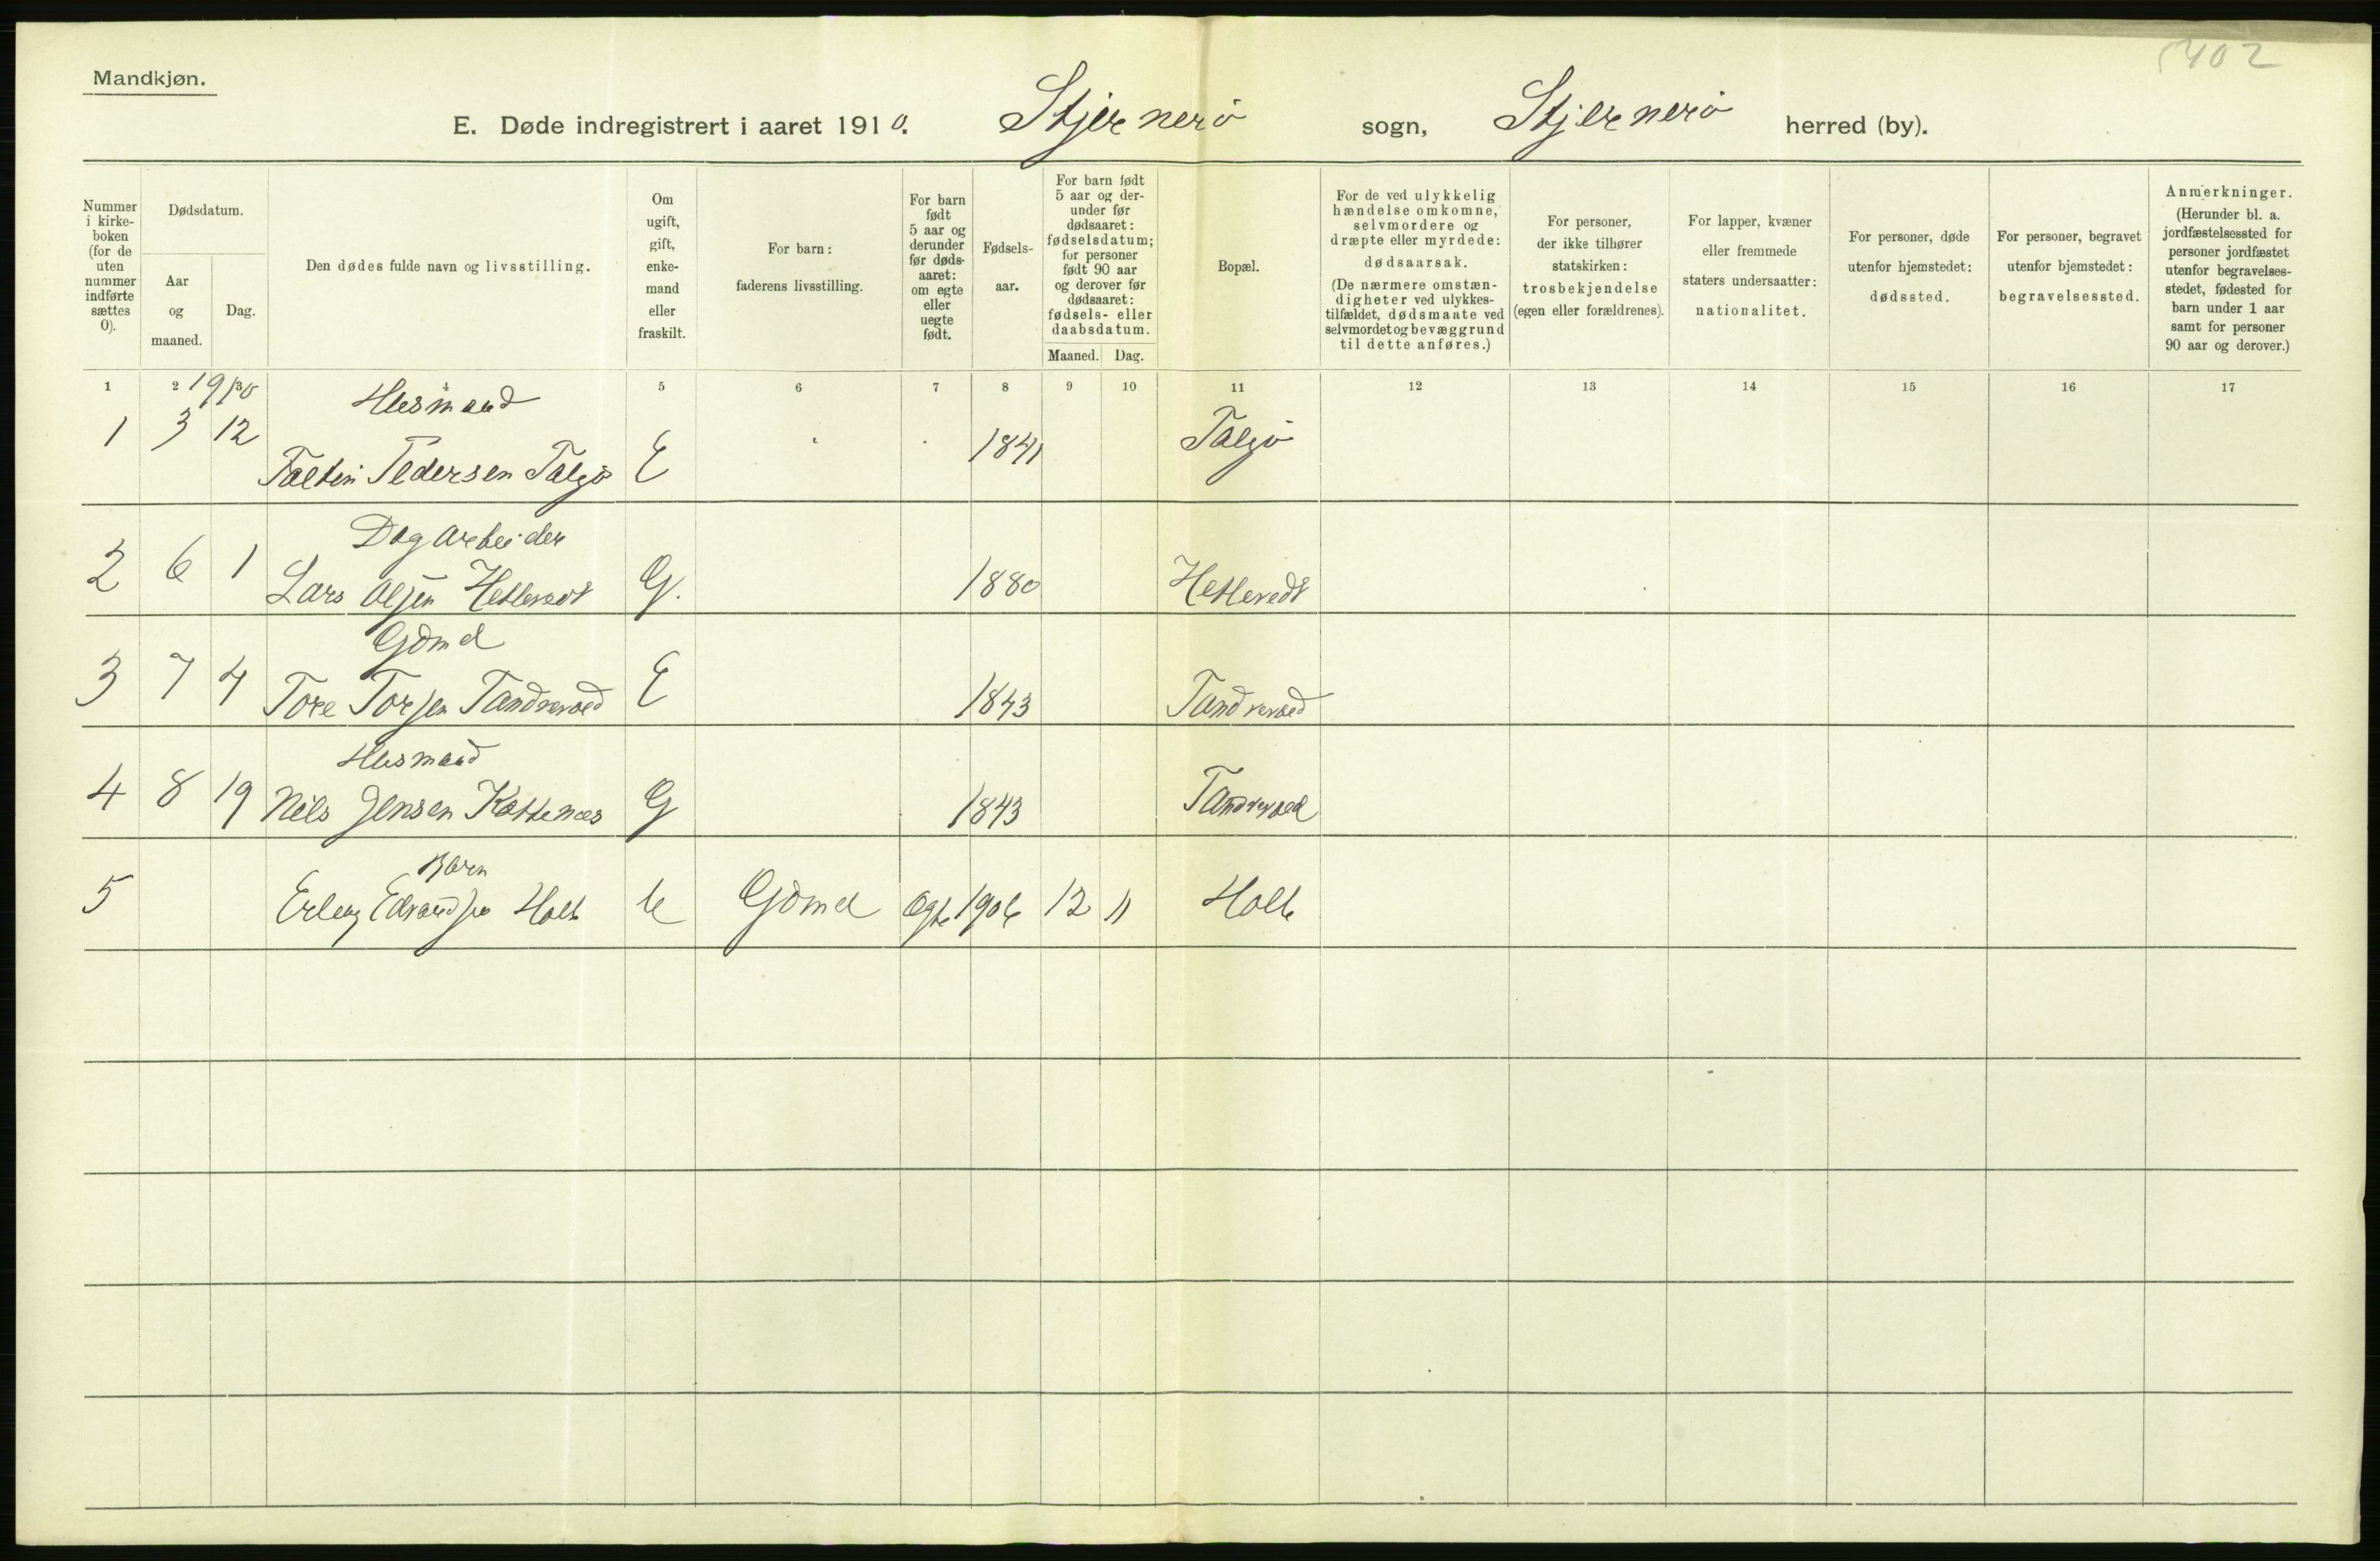 Mandkjøn.
E. Døde indregistrert i aaret 1910. Stjernerö sogn, Stjernerö herred (by).
Nummer i kirke-boken (for de uten nummer indførte sættes 0).
Dødsdatum.
Aar og maaned.
Dag.
Den dødes fulde navn og livsstilling.
Om ugift, gift, enke-mand eller fraskilt.
For barn: faderens livsstilling.
For barn født 5 aar og derunder før døds-aaret: om egte eller uegte født.
Fødsels-aar.
For barn født 5 aar og der-under før dødsaaret: fødselsdatum; for personer født 90 aar og derover før dødsaaret: fødsels- eller daabsdatum.
Maaned. Dag.
Bopæl.
For de ved ulykkelig hændelse omkomne, selvmordere og dræpte eller myrdede: dødsaarsak.
(De nærmere omstæn-digheter ved ulykkes-tilfældet, dødsmaate ved selvmordet og bevæggrund til dette anføres.)
For personer, der ikke tilhører statskirken: trosbekjendelse (egen eller forældrenes).
For lapper, kvæner eller fremmede staters undersaatter: nationalitet.
For personer, døde utenfor hjemstedet: dødssted.
For personer, begravet utenfor bjemstedet: begravelsessted.
Anmerkninger.
(Herunder bl. a. jordfæstelsessted for personer jordfæstet utenfor begravelses-stedet, fødested for barn under 1 aar samt for personer 90 aar og derover.)
1 2 3 4 5 6 7 8 9 10 11 12 13 14 15 16 17
1910
Husmand
1 3 12 Tedersen Talgö E 1841 Talgö
Dagarbeider
2 6 1 Lars G. 1880 Hetlevedt
Gdmd
3 7 4 Tore Torsen E 1843
Husmand
4 8 19 Nils Jensen G 1843
Barn
5 Holt U Gdmd Ogte 1906 12 11 Holt